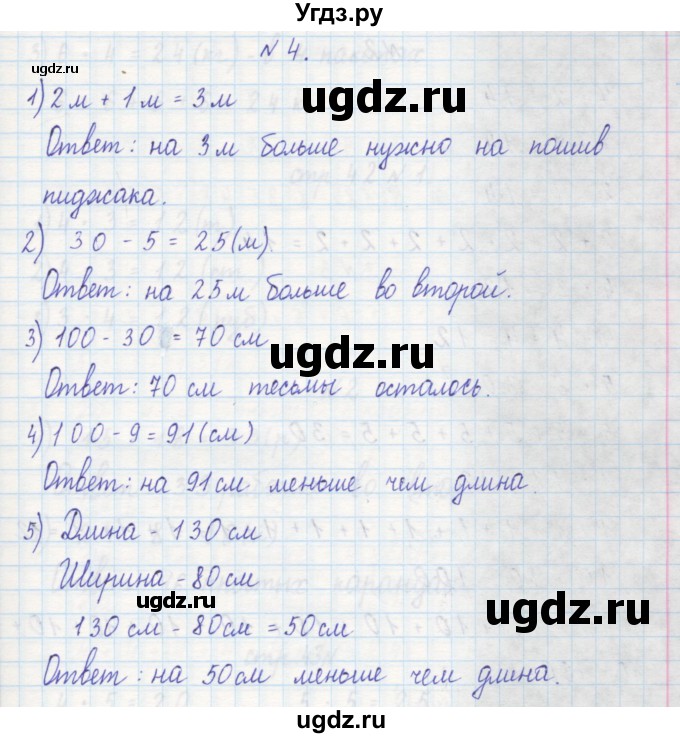 Угдз.ру
№ 4.
1) 2 м + 1 м = 3 м
Ответ: на 3 м больше нужно на пошив
пиджака.
2) 30 - 5 = 25 (м)
Ответ: на 25 м больше во второй.
3) 100 - 30 = 70 см
Ответ: 70 см тесьмы осталось.
4) 100 - 9 = 91 (см)
Ответ: на 91 см меньше чем длина.
5) Длина - 130 см
Ширина - 80 см
130 см - 80 см = 50 см
Ответ: на 50 см меньше чем длина.
ugdz.ru
ugdz.ru
ugdz.ru
ugdz.ru
ugdz.ru
ugdz.ru
ugdz.ru
ugdz.ru
ugdz.ru